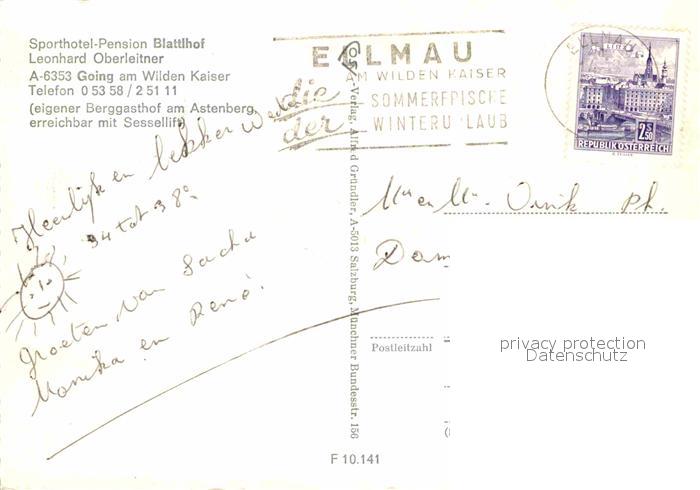 Sporthotel-Pension Blattlhof
Leonhard Oberleitner
A-6353 Going am Wilden Kaiser
Telefon 0 53 58 / 2 51 11
(eigener Berggasthof am Astenberg,
erreichbar mit Sessellift)
ELLMAU
AM WILDEN KAISER
SOMMERFRISCHE
WINTERURLAUB
ELLMAU
2S50
REPUBLIK ÖSTERREICH
Heerlijk en lekker
34 tot 38°
Groeten van Sacha
Monika en René.
die
der
-Verlag, Alfred Gründler, A-5013 Salzburg, Münchner Bundesstr. 156
Ph.
Dam
Postleitzahl
privacy protection
Datenschutz
F 10.141